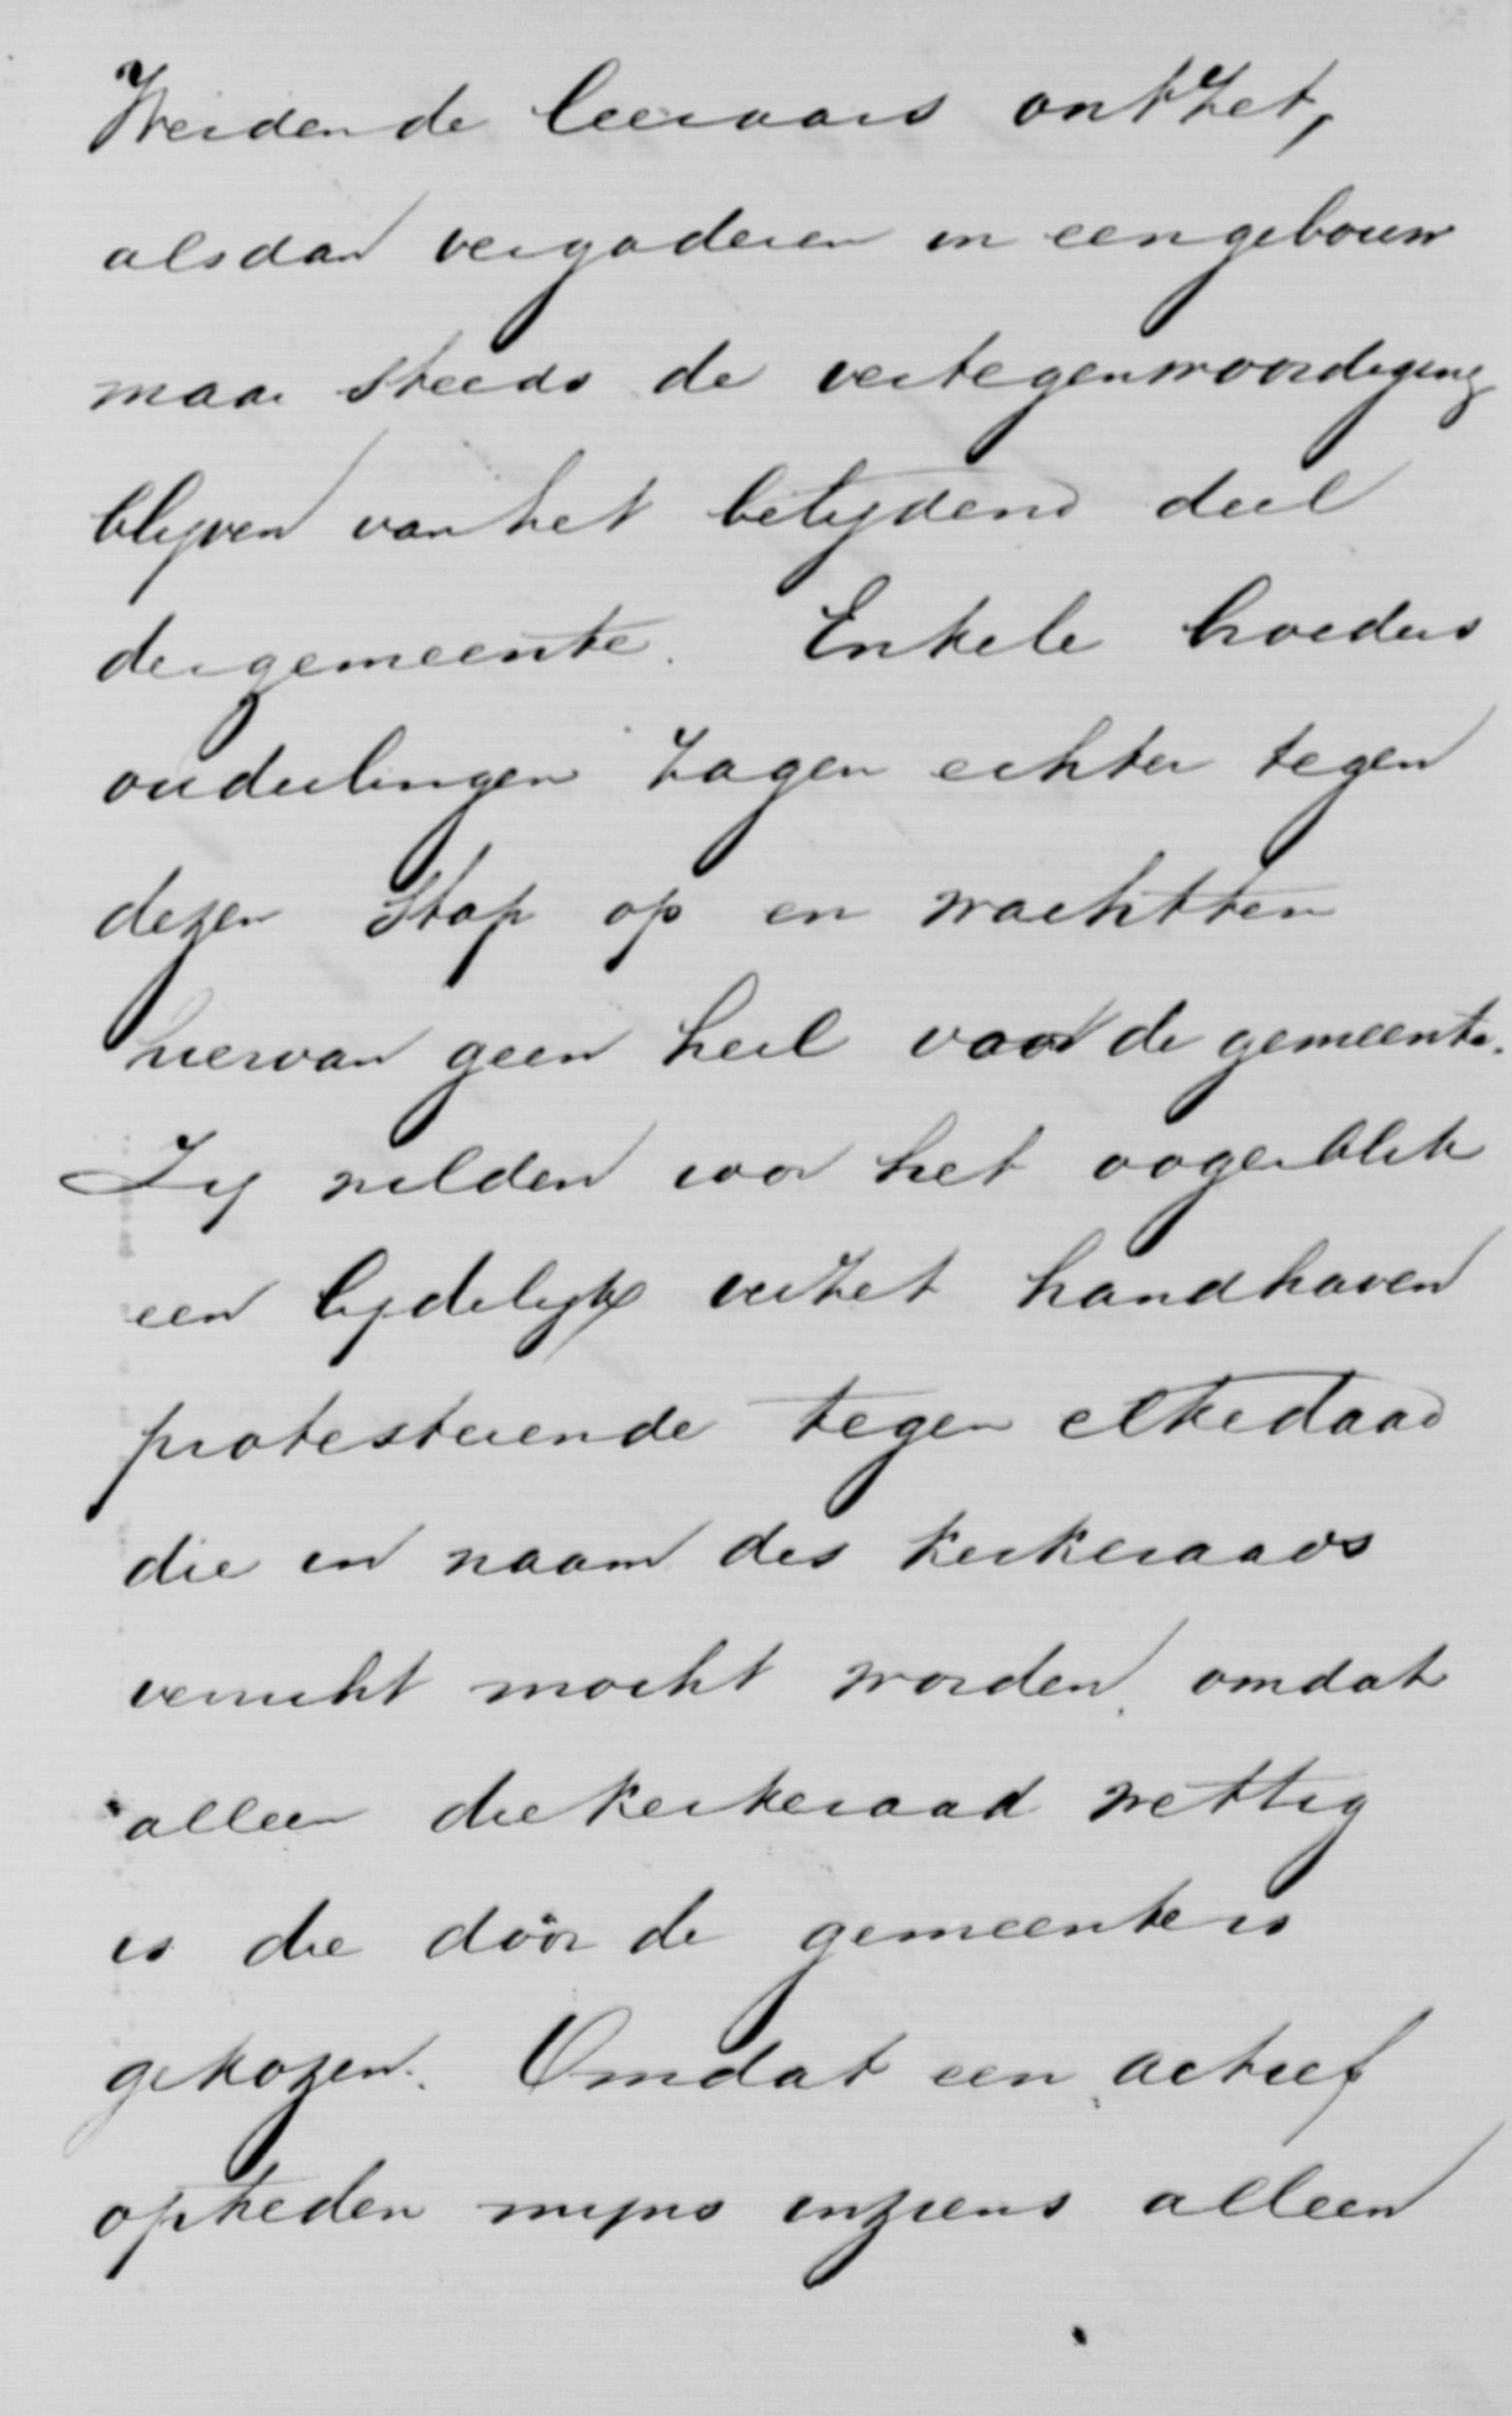 Weidende leeraars ontzet,
alsdan vergaderen in een gebouw
maar steeds de vertegenwoordiging
blijven van het belijdend deel
der gemeente. Enkele broeders
ouderlingen zagen echter tegen
dezen stap op en wachtten
hiervan geen heil voor de gemeente.
Zij wilden voor het oogenblik
een lijdelijk verzet handhaven
protesteerende tegen elke daad
die in naam des kerkeraads
verricht mocht worden, omdat
alleen die kerkeraad wettig
is die dóór de gemeente is
gekozen. Omdat een actief
optreden mijns inziens alleen